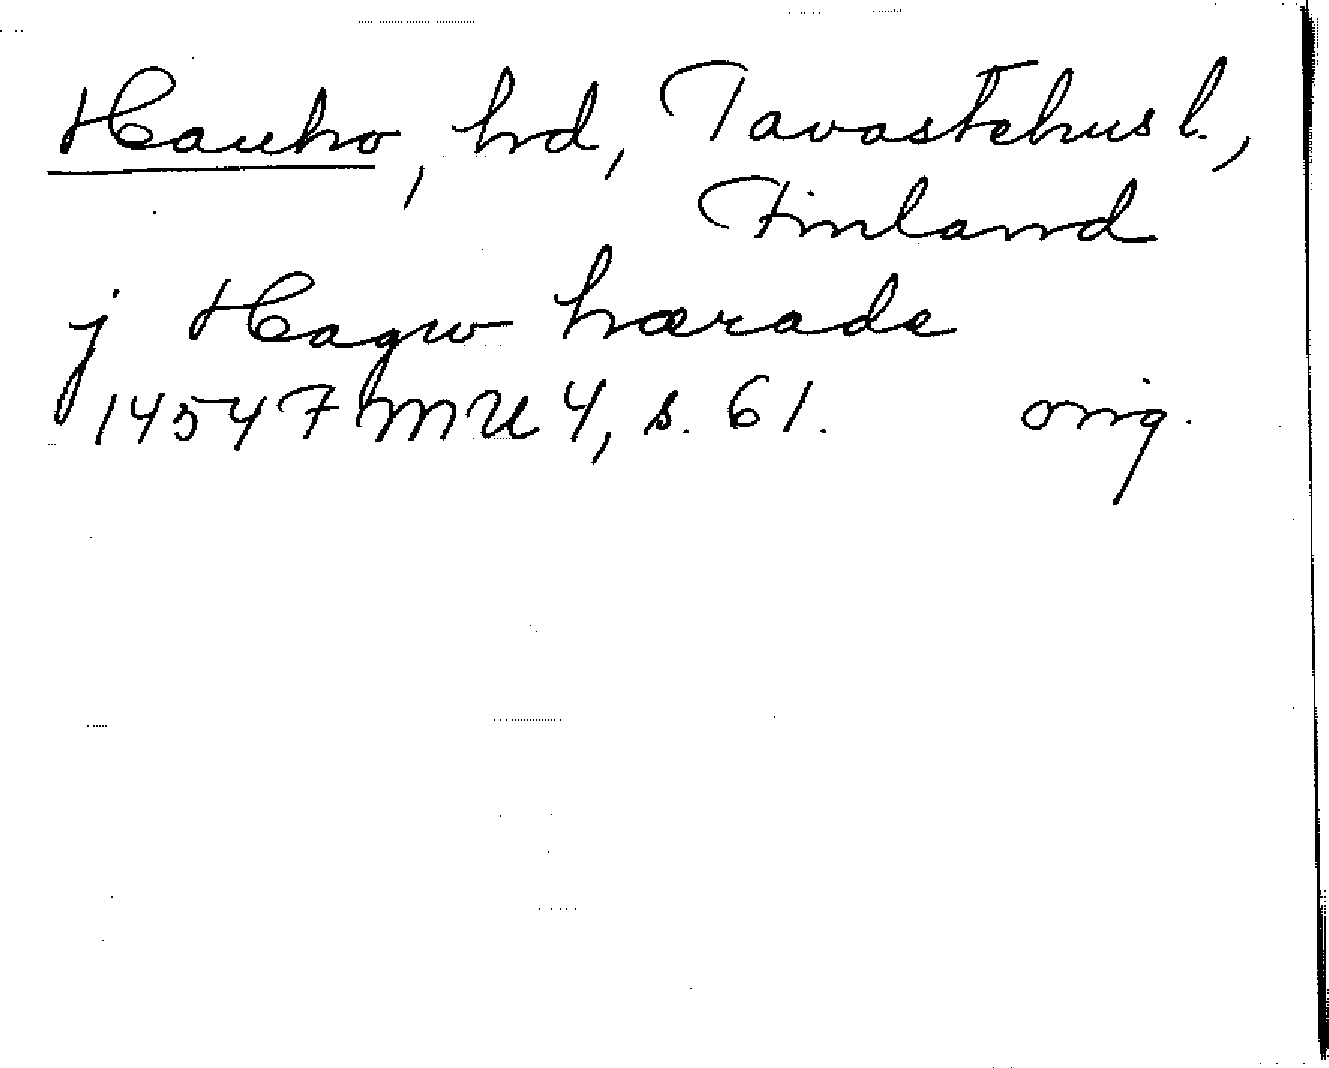 Hauho, hd, Tavastehus l.,
Finland
j Hagw hærade
1454 FMU 4, s. 61. orig.